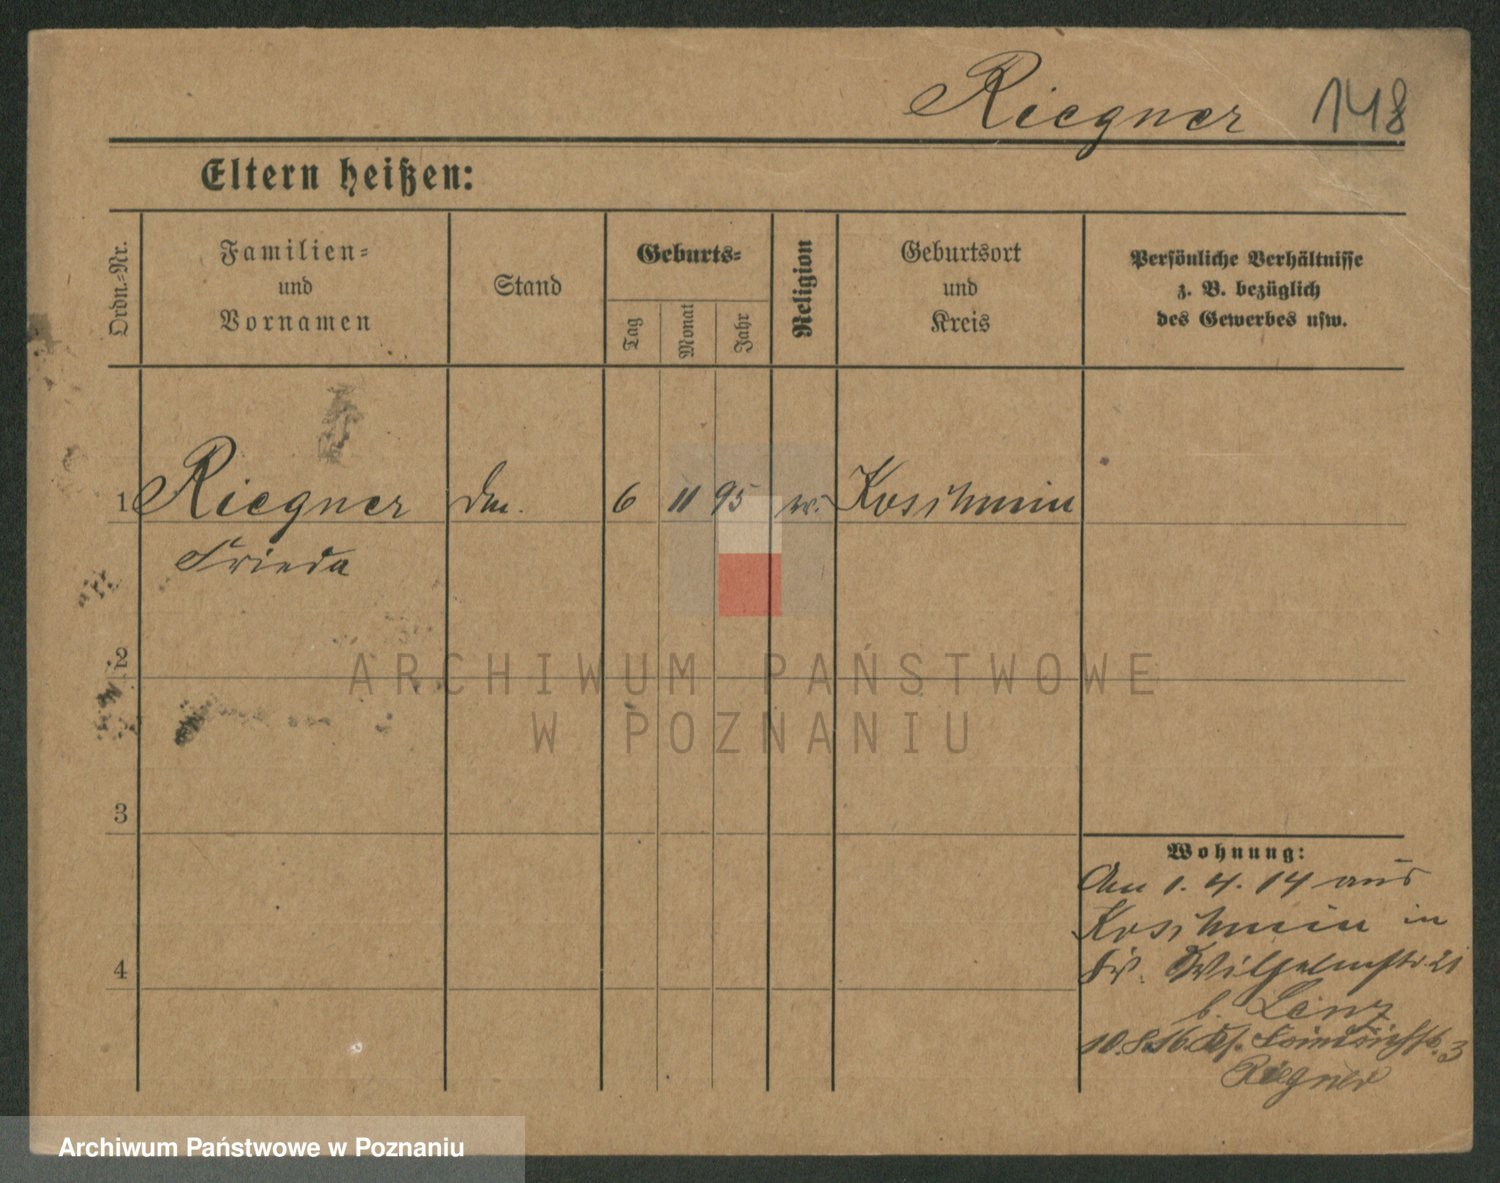 Riegner 148
Eltern heißen:
Ordn.-Nr.
Familien-
und
Vornamen
Stand
Geburts-
Tag
Monat
Jahr
Religion
Geburtsort
und
Kreis
Persönliche Verhältnisse
z. B. bezüglich
des Gewerbes usw.
1 Riegner 6 11 95 Koschmin
Frieda
2
3
4
Wohnung:
Am 1. 4. 14 aus
Koschmin in
Wilhelmstr. 21
b. Lenz
10. 8. 16. 3
Riegner
ARCHIWUM PAŃSTWOWE
W POZNANIU
Archiwum Państwowe w Poznaniu